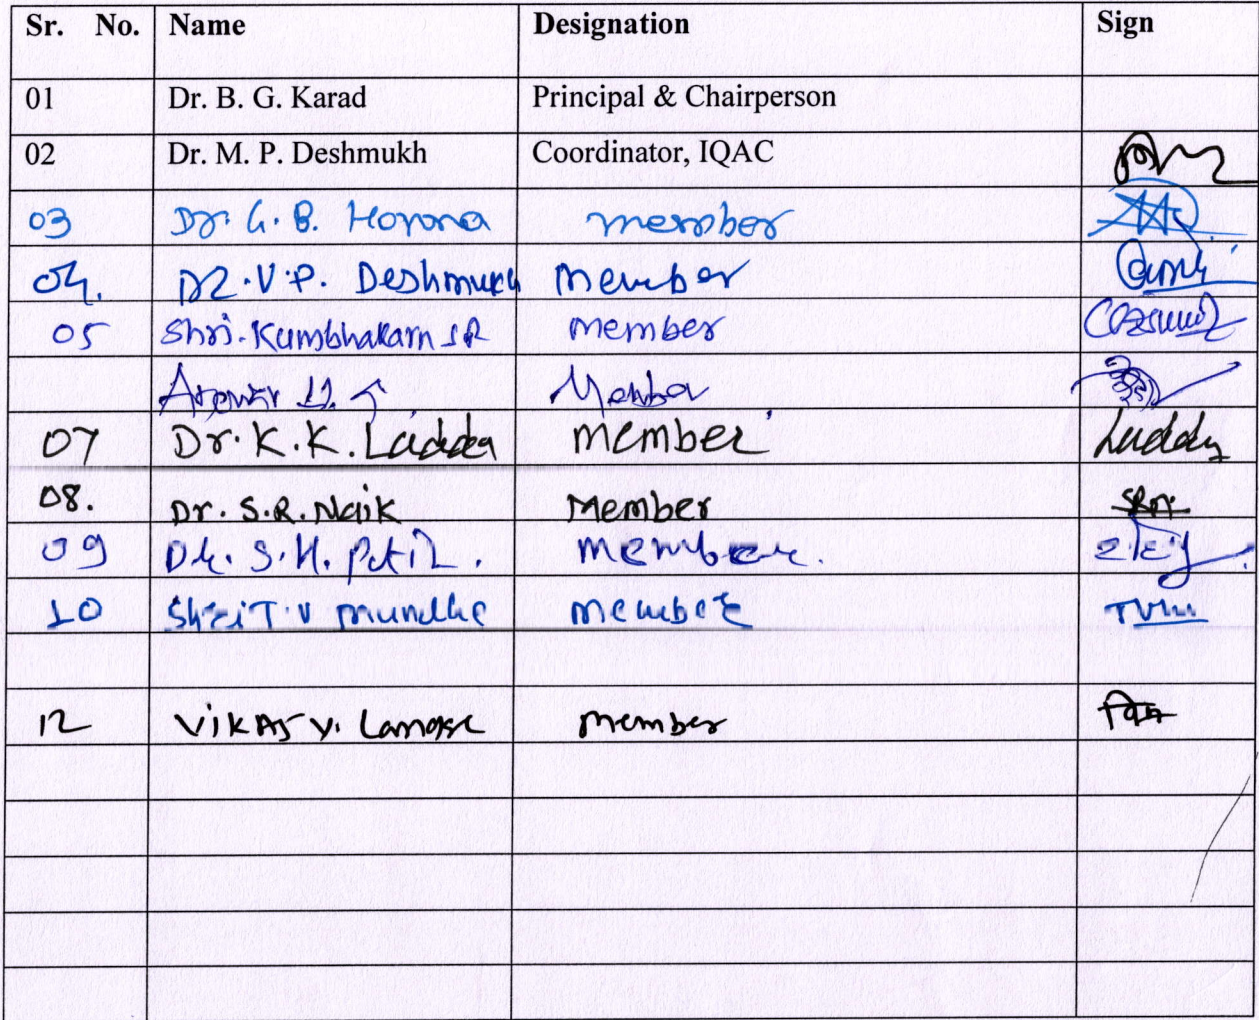 Sr. No. Name Designation Sign
01 Dr. B. G. Karad Principal & Chairperson
02 Dr. M. P. Deshmukh Coordinator, IQAC
03 Dr. G. B. member
04. Dr. V. P. Deshmukh Member
05 Shri. Kumbhakarn S R member
Member
07 Dr. K. K. Ladda member Ladda
08. Dr. S. R. Naik Member
09 Dr. S. H. Patil. member.
10 Shri T. V mundhe member TVM
12 Vikas V. member